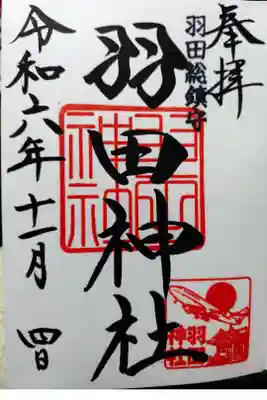 奉拝
羽田総鎮守
羽田神社
令和六年十一月四日
羽田神社